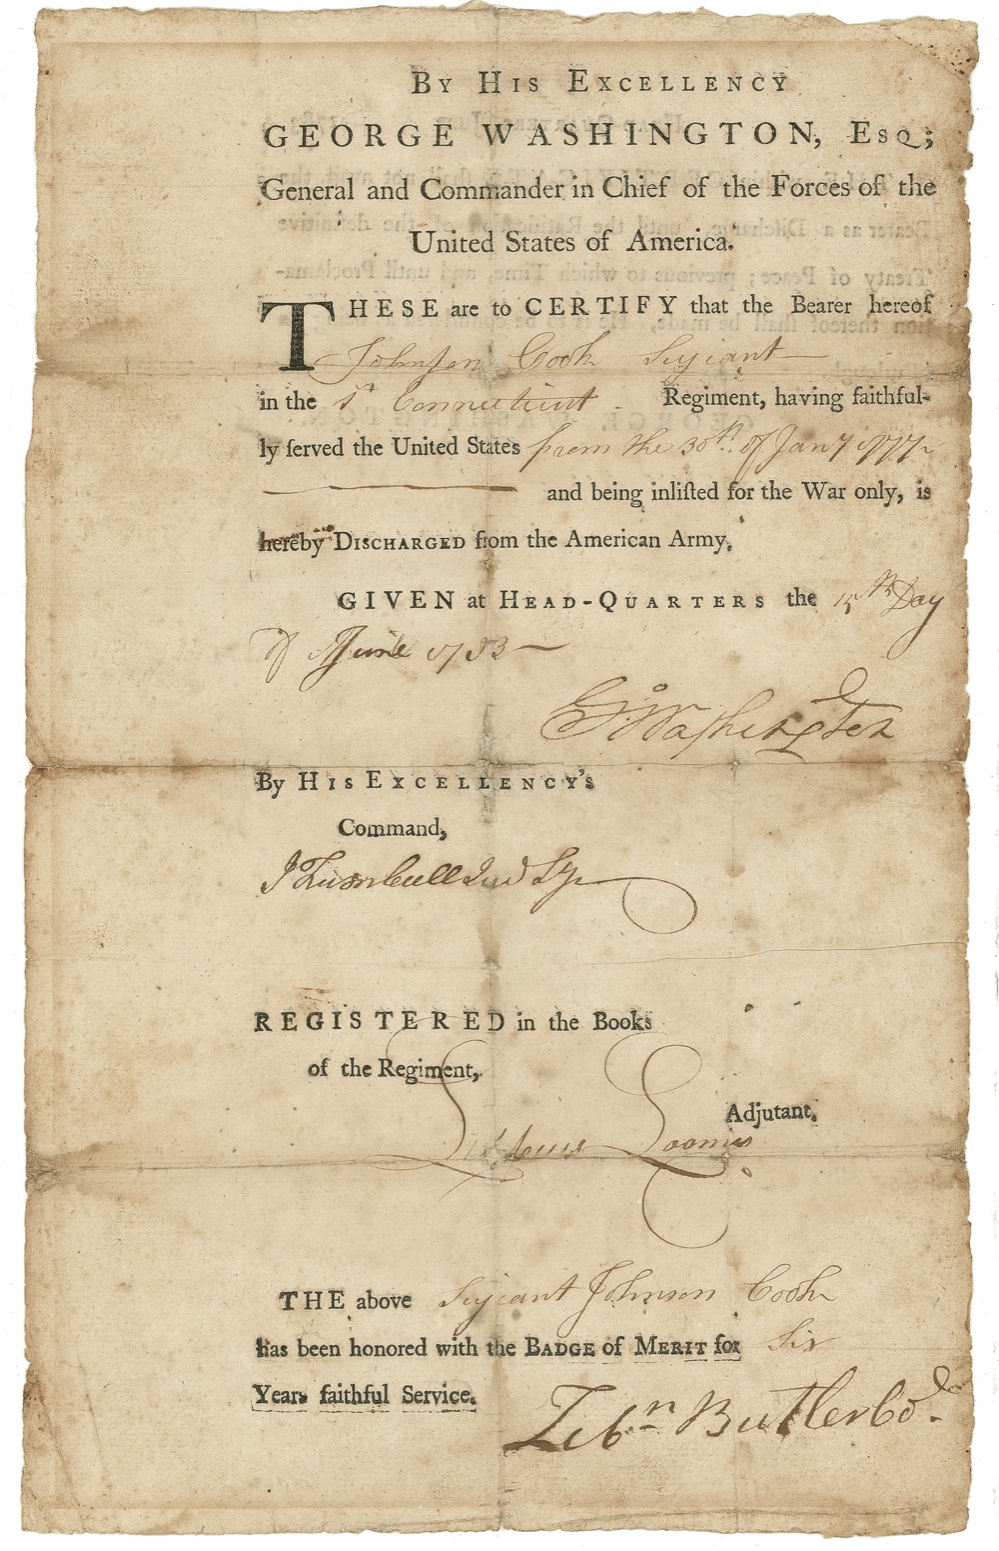 By His Excellency
GEORGE WASHINGTON, Esq;
General and Commander in Chief of the Forces of the
United States of America.
THESE are to CERTIFY that the Bearer hereof
Johnson Cook Serjeant
in the 1st Connecticut Regiment, having faithful-
ly ſerved the United States from the 30th. of Jany 1777
and being inliſted for the War only, is
hereby Discharged from the American Army.
GIVEN at Head-Quarters the 15th Day
of June 1783
Go: Washington
By His Excellency's
Command,
J Trumbull Jun
REGISTERED in the Books
of the Regiment,
Adjutant,
Loomis
THE above Serjeant Johnson Cook
has been honored with the Badge of Merit for Six
Years faithful Service.
Zebn Butler Col.